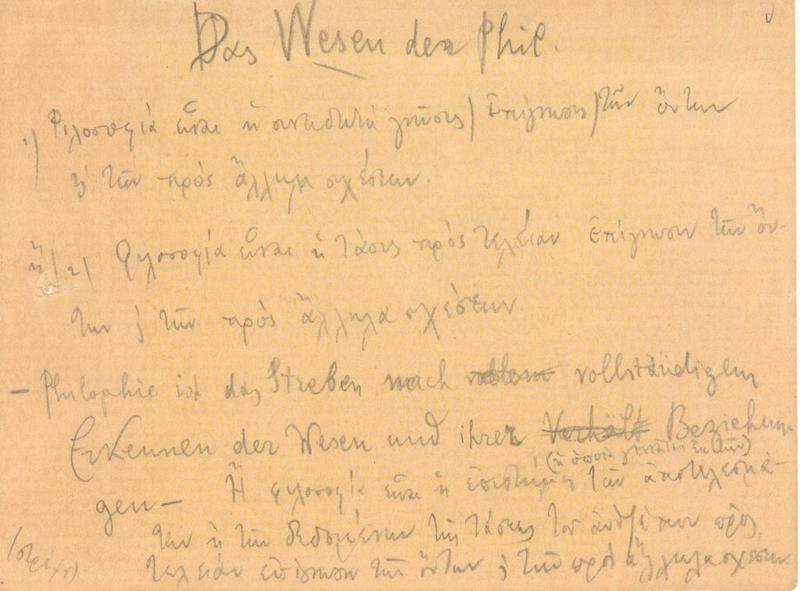 Das Wesen der Phil.
1) Φιλοσοφία εἶναι ἡ συνειδητὴ γνῶσις (Ἐπίγνωσις) τῶν ὄντων
ϗ τῶν πρὸς ἄλληλα σχέσεων.
ἢ/2) Φιλοσοφία εἶναι ἡ τάσις πρὸς τελείαν ἐπίγνωσιν τῶν ὄν-
των ϗ τῶν πρὸς ἄλληλα σχέσεων.
— Philophie ist das Streben nach vollständigem
Erkennen der Wesen und ihrer Verhält Beziehun-
(ἡ ὁποία
gen — Ἢ φιλοσοφία εἶναι ἡ ἐπιστήμη τῶν ἀποτελεσμά-
των ἢ τῶν δεδομένων τῆς τάσεως τοῦ ἀνθρώπου πρὸς
τελείαν ἐπίγνωσιν τῶν ὄντων ϗ τῶν πρὸς ἄλληλα σχέσεων